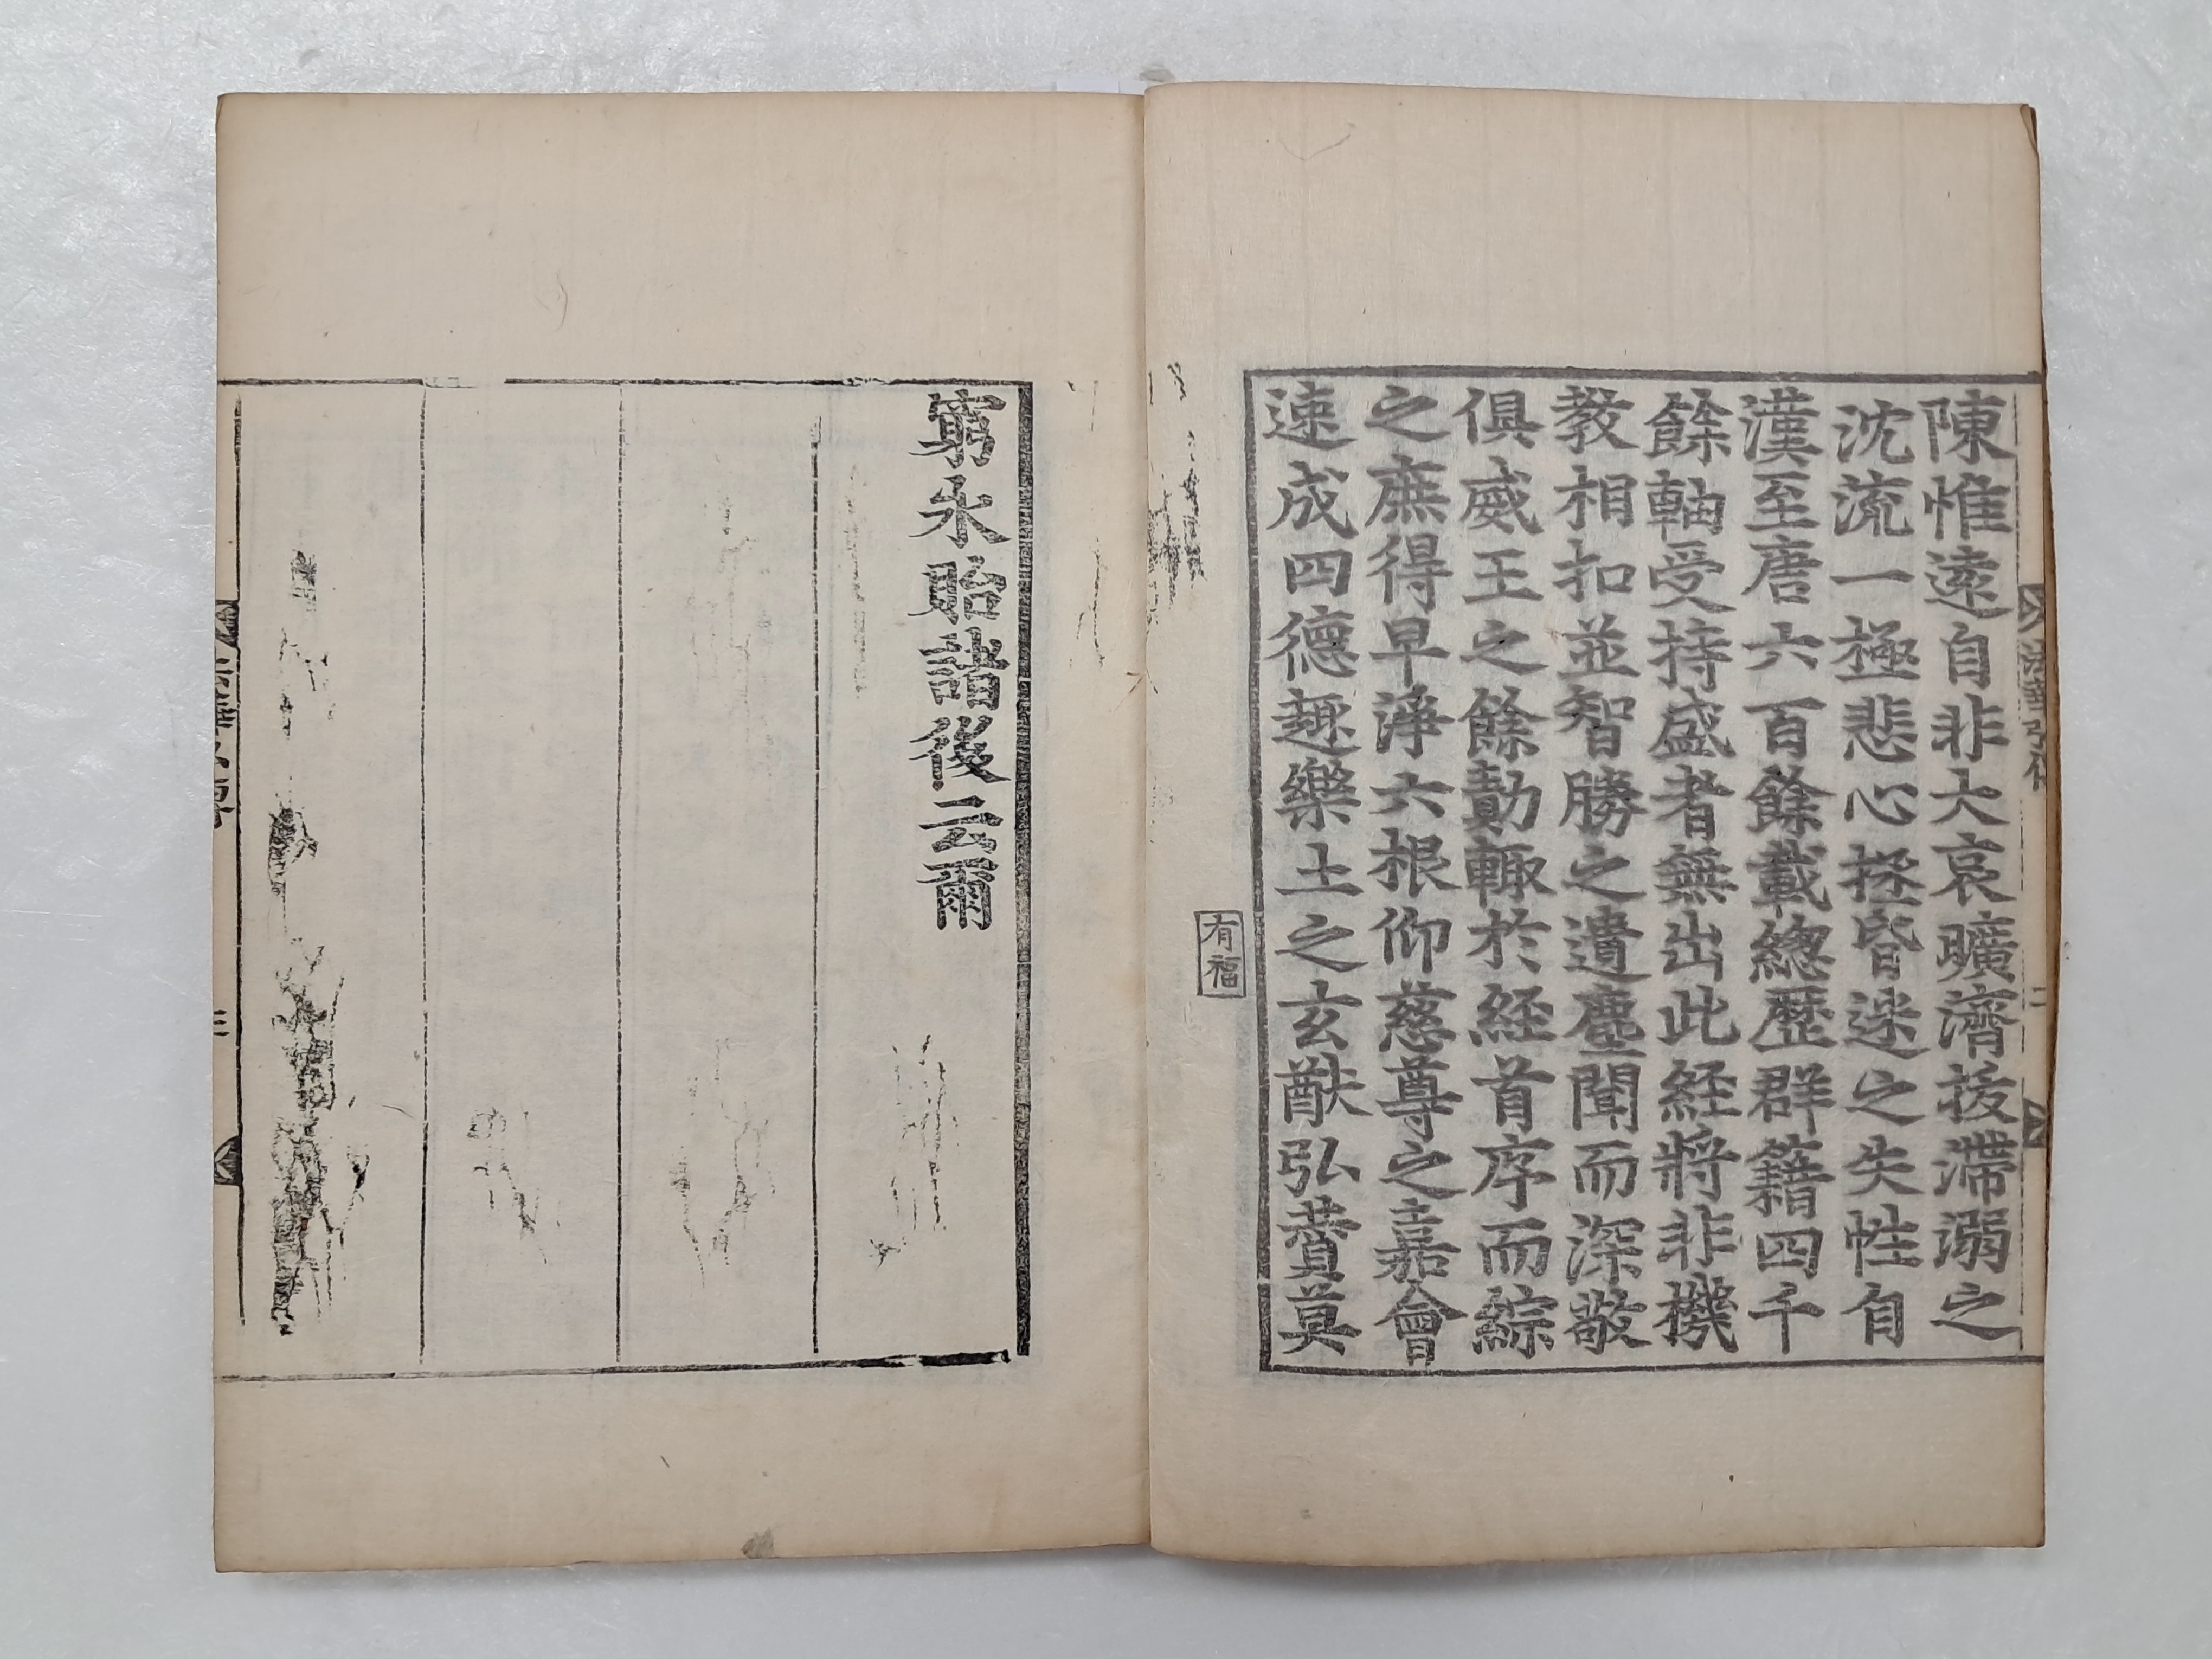 陳惟遠自非大哀曠濟拔滯溺之
沈流一極悲心拯昏迷之失性自
漢至唐六百餘載總歷群籍四千
餘軸受持盛者無出此經將非機
教相扣並智勝之遺塵聞而深敬
俱威王之餘勣輙於經首序而綜
之庶得早淨六根仰慈尊之嘉會
速成四德趣樂土之玄猷弘賛莫
有福
窮永貽諸後云爾
三